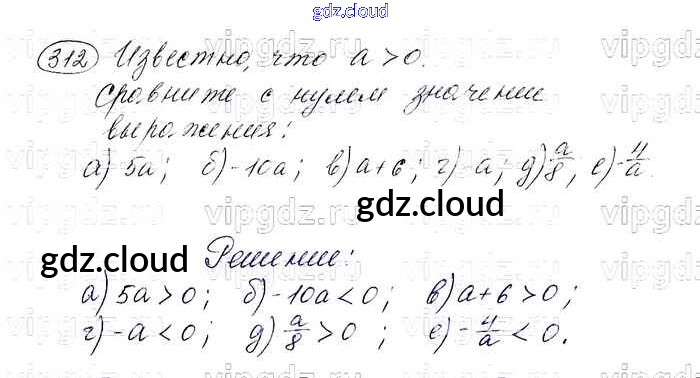 gdz.cloud
312 Известно, что a > 0.
Сравните с нулем значении
выражения:
а) 5a; б) -10a; в) a+6; г) -a; д) a/8; е) -4/a.
gdz.cloud
gdz.cloud
Решение:
а) 5a > 0; б) -10a < 0; в) a+6 > 0;
г) -a < 0; д) a/8 > 0; е) -4/a < 0.
vipgdz.ru